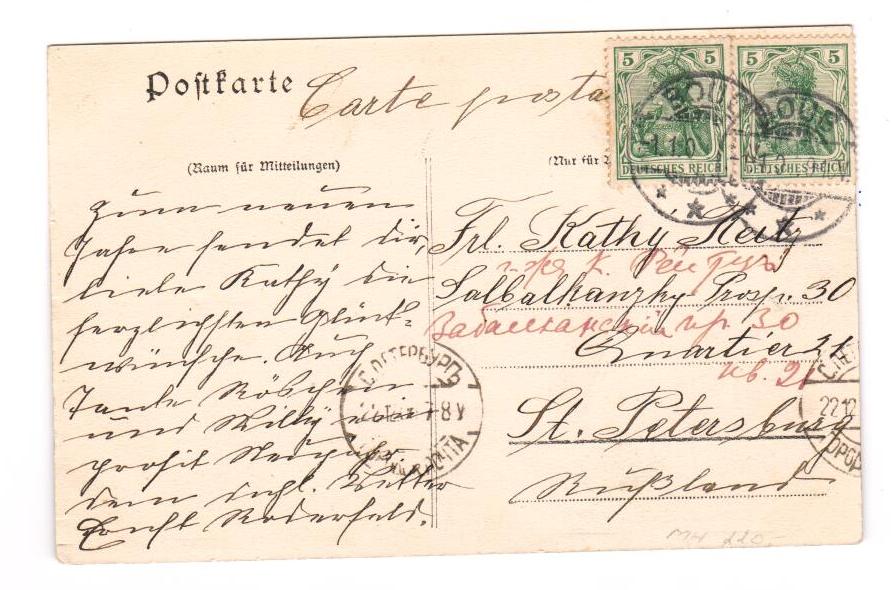 Postkarte
Carte posta
(Raum für Mitteilungen)
(Nur für
5 5
DEUTSCHES REICH
5 5
DEUTSCHES REICH
Zum neuen
Jahre sendet dir,
liebe Kathy die
herzlichsten Glück-
wünsche. Auch
Tante Röschen
und Willy
prosit Neujahr.
dein Vetter
Roderfeld.
Frl. Kathy
Sabalkansky Prosp. 30
Забалканский пр 30
Quartier 21
кв. 21
St. Petersburg
Rußland
С.ПЕТЕРБУРГЪ
7-8 V
22 12
MH 220,-